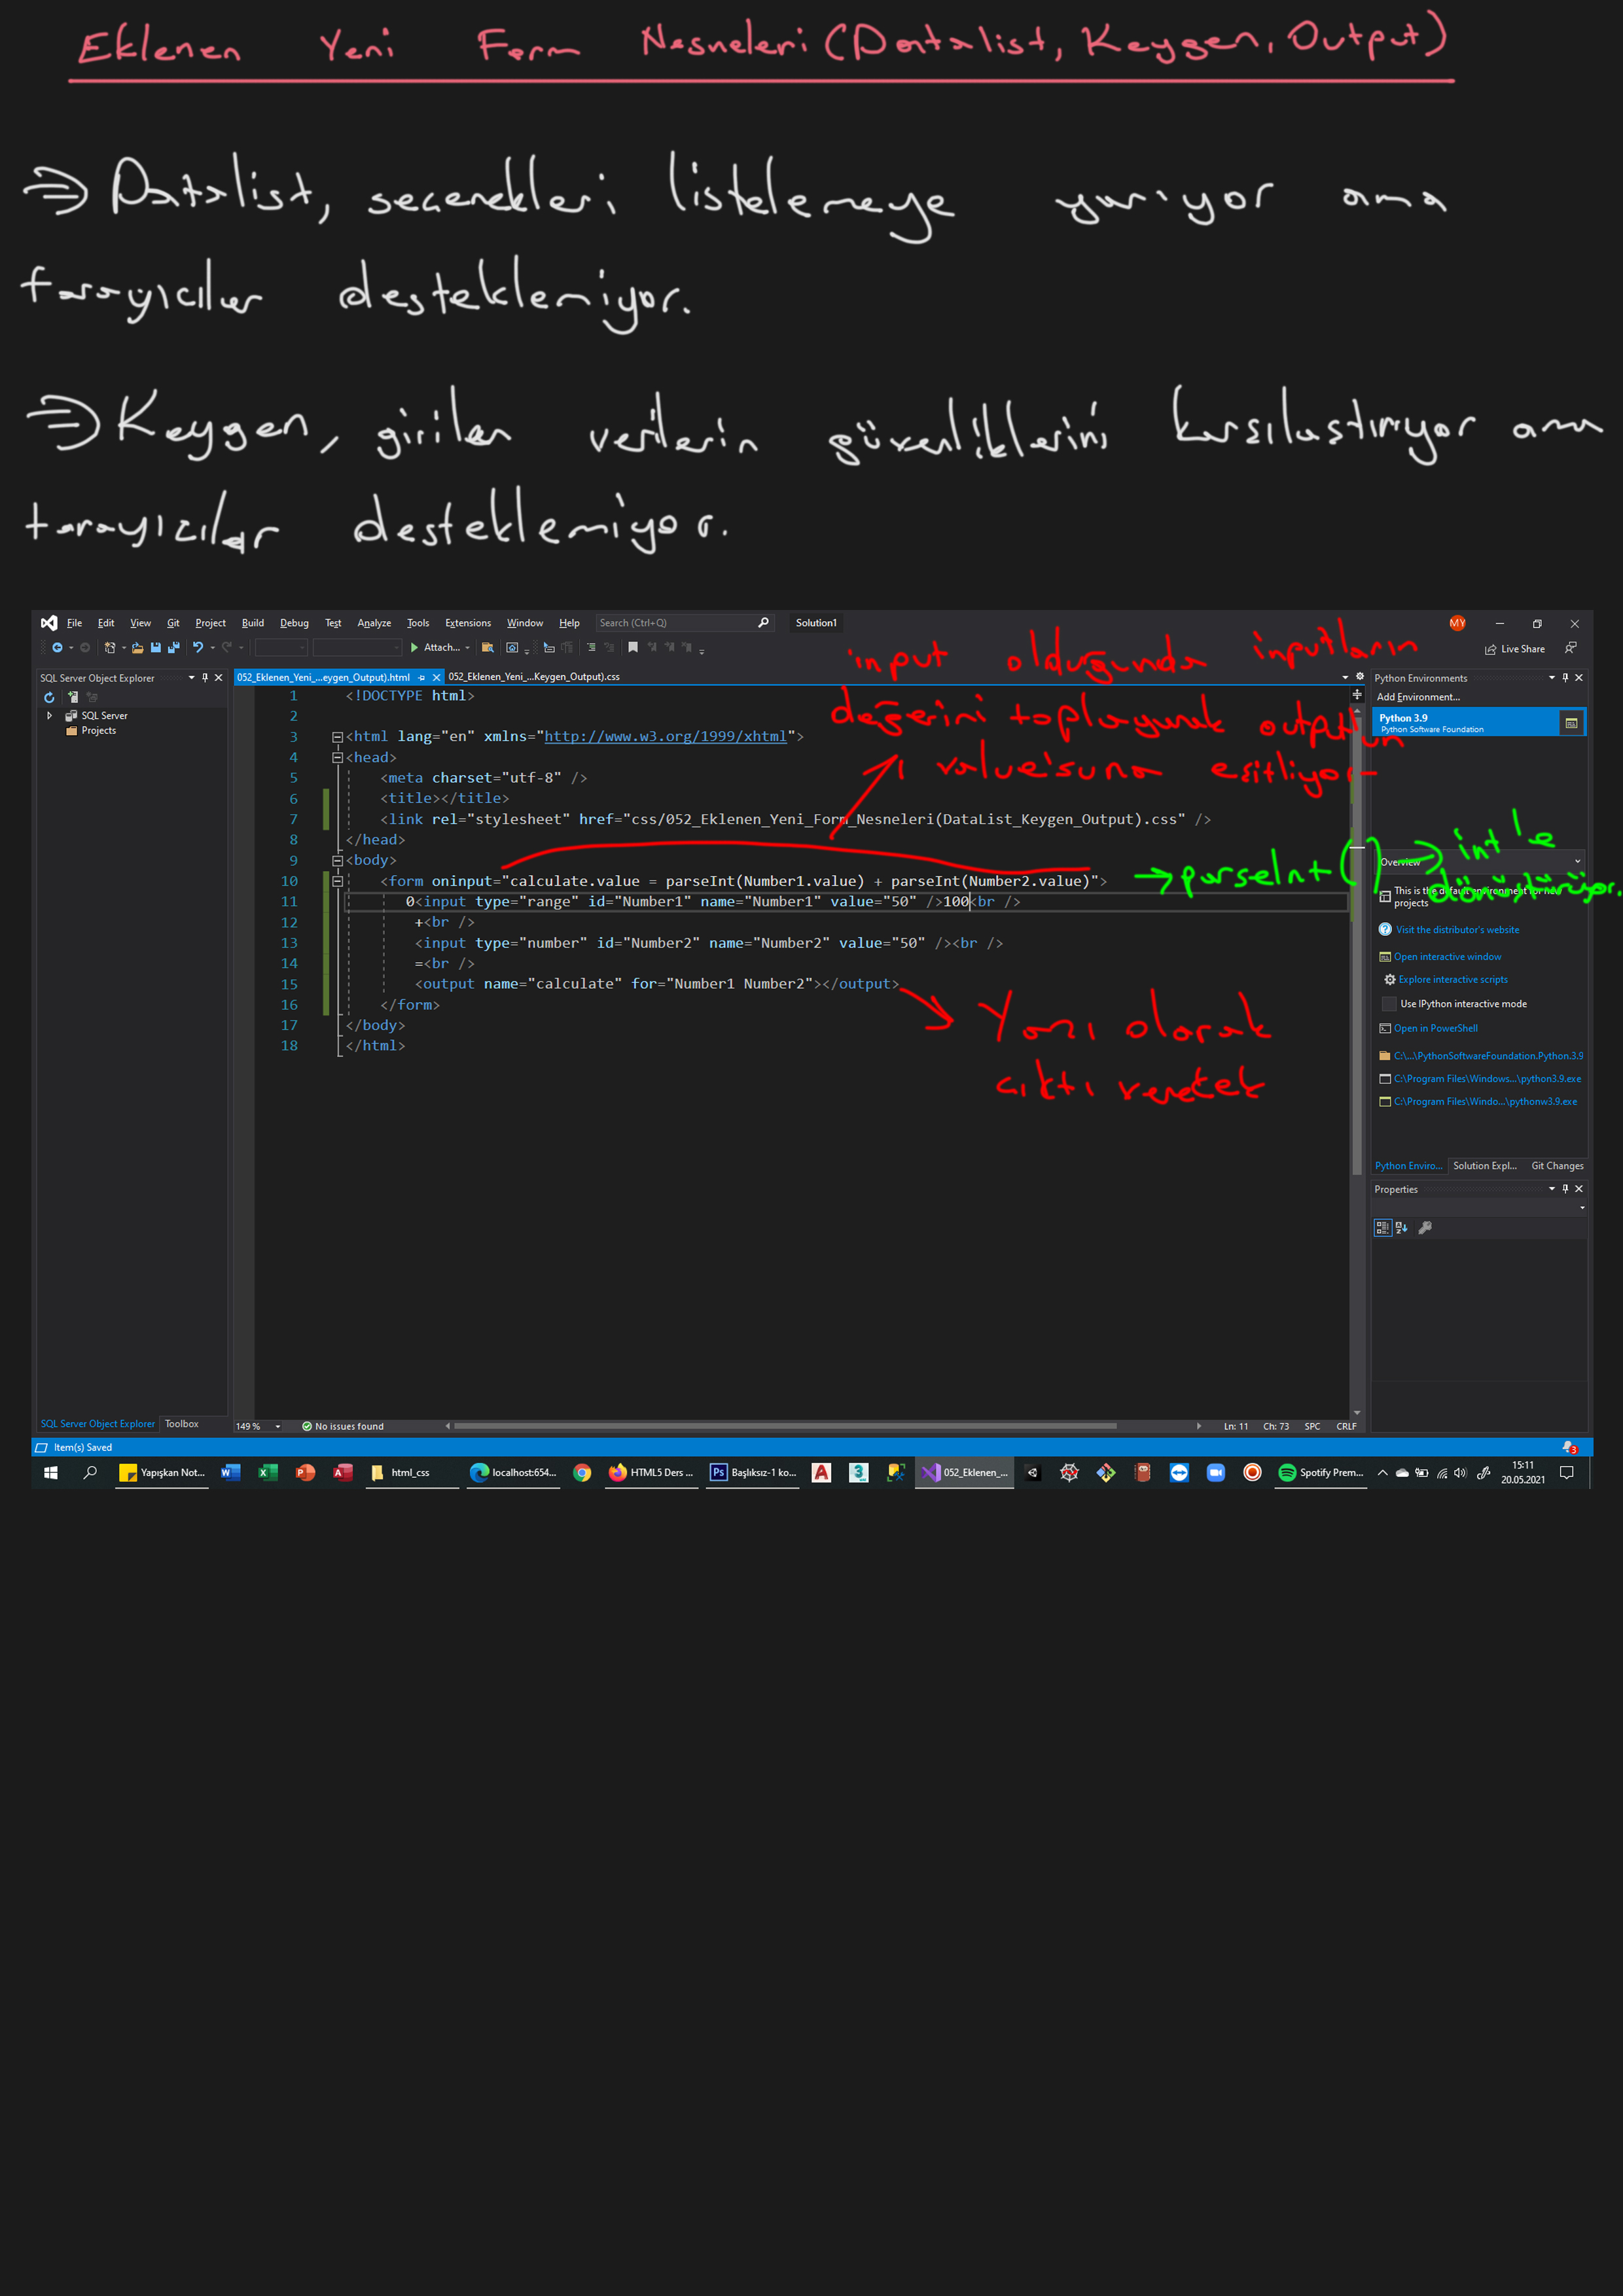 Eklenen Yeni Form Nesneleri (Datalist, Keygen, Output)
⇒ Datalist, secenekleri listelemeye yarıyor ama
tarayıcılar desteklemiyor.
⇒ Keygen, girilen verilerin güvenliklerini karsılastırıyor ama
tarayıcılar desteklemiyor.
File Edit View Git Project Build Debug Test Analyze Tools Extensions Window Help Search (Ctrl+Q) Solution1 MY
Attach... Live Share
input oldugunda inputların
değerini toplayarak outputun
value'suna esitliyor
SQL Server Object Explorer
SQL Server
Projects
052_Eklenen_Yeni_...eygen_Output).html 052_Eklenen_Yeni_...Keygen_Output).css
1 <!DOCTYPE html>
2
3 <html lang="en" xmlns="http://www.w3.org/1999/xhtml">
4 <head>
5 <meta charset="utf-8" />
6 <title></title>
7 <link rel="stylesheet" href="css/052_Eklenen_Yeni_Form_Nesneleri(DataList_Keygen_Output).css" />
8 </head>
9 <body>
10 <form oninput="calculate.value = parseInt(Number1.value) + parseInt(Number2.value)">
11 0<input type="range" id="Number1" name="Number1" value="50" />100<br />
12 +<br />
13 <input type="number" id="Number2" name="Number2" value="50" /><br />
14 =<br />
15 <output name="calculate" for="Number1 Number2"></output>
16 </form>
17 </body>
18 </html>
→ parseInt() → int'e
dönüştürüyor.
Yani olarak
cıktı verecek
Python Environments
Add Environment...
Python 3.9
Python Software Foundation
Overview
This is the default environment for new
projects
Visit the distributor's website
Open interactive window
Explore interactive scripts
Use IPython interactive mode
Open in PowerShell
C:\...\PythonSoftwareFoundation.Python.3.9
C:\Program Files\Windows...\python3.9.exe
C:\Program Files\Windo...\pythonw3.9.exe
Python Enviro... Solution Expl... Git Changes
Properties
SQL Server Object Explorer Toolbox
149 % No issues found Ln: 11 Ch: 73 SPC CRLF
Item(s) Saved 3
Yapışkan Not... html_css localhost:654... HTML5 Ders ... Başlıksız-1 ko... 052_Eklenen_... Spotify Prem... 15:11
20.05.2021